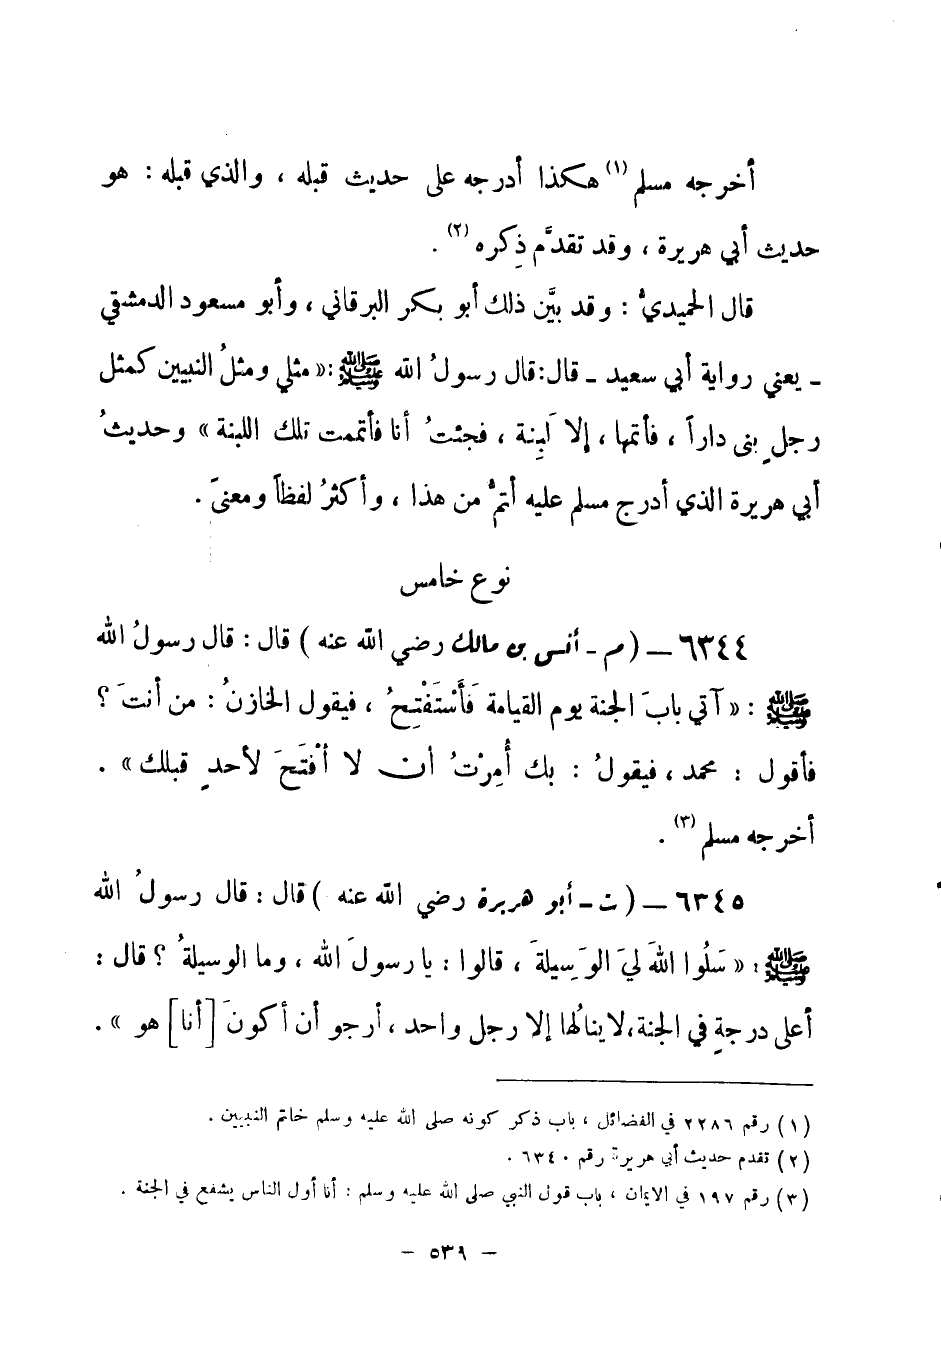 أخرجه مسلم (١) هكذا أدرجه على حديث قبله ، والذي قبله : هو
حديث أبي هريرة ، وقد تقدَّم ذِكره (٢) .
قال الحميديُّ : وقد بيَّن ذلك أبو بكر البرقاني ، وأبو مسعود الدمشقي
ـ يعني رواية أبي سعيد ـ قال:قال رسولُ الله ﷺ :« مثلي ومثلُ النبيين كمثل
رجلٍ بنى داراً ، فأتمها ، إلا لَبِنة ، فجئتُ أنا فأتممت تلك اللبنة » وحديثُ
أبي هريرة الذي أدرج مسلم عليه أتمُّ من هذا ، وأكثرُ لفظاً ومعنىً .
نوع خامس
٦٣٤٤ ــ ( م ـ أنس بن مالك رضي الله عنه ) قال : قال رسولُ الله
ﷺ : « آتي بابَ الجنة يوم القيامة فَأَسْتَفْتِحُ ، فيقول الخازنُ : من أنتَ ؟
فأقول : محمد ، فيقولُ : بك أُمِرْتُ أن لا أفْتَحَ لأحدٍ قبلك » .
أخرجه مسلم (٣) .
٦٣٤٥ ــ ( ت ـ أبو هريرة رضي الله عنه ) قال : قال رسولُ الله
ﷺ : « سَلُوا اللهَ ليَ الوَسِيلةَ ، قالوا : يا رسولَ الله ، وما الوسيلةُ ؟ قال :
أعلى درجةٍ في الجنة،لا ينالُها إلا رجل واحد ، أرجو أن أكونَ [أنا] هو » .
(١) رقم ٢٢٨٦ في الفضائل ، باب ذكر كونه صلى الله عليه وسلم خاتم النبيين .
(٢) تقدم حديث أبي هريرة رقم ٦٣٤٠ .
(٣) رقم ١٩٧ في الايمان ، باب قول النبي صلى الله عليه وسلم : أنا أول الناس يشفع في الجنة .
– ٥٣٩ –